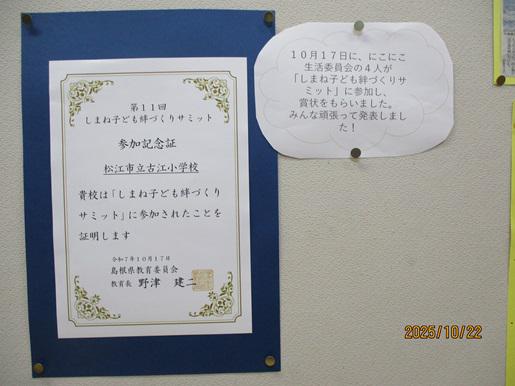 第11回
しまね子ども絆づくりサミット
参加記念証
松江市立古江小学校
貴校は「しまね子ども絆づくり
サミット」に参加されたことを
証明します
令和7年10月17日
島根県教育委員会
教育長 野津 建二
10月17日に、にこにこ
生活委員会の4人が
「しまね子ども絆づくりサ
ミット」に参加し、
賞状をもらいました。
みんな頑張って発表しまし
た!
2025/10/22